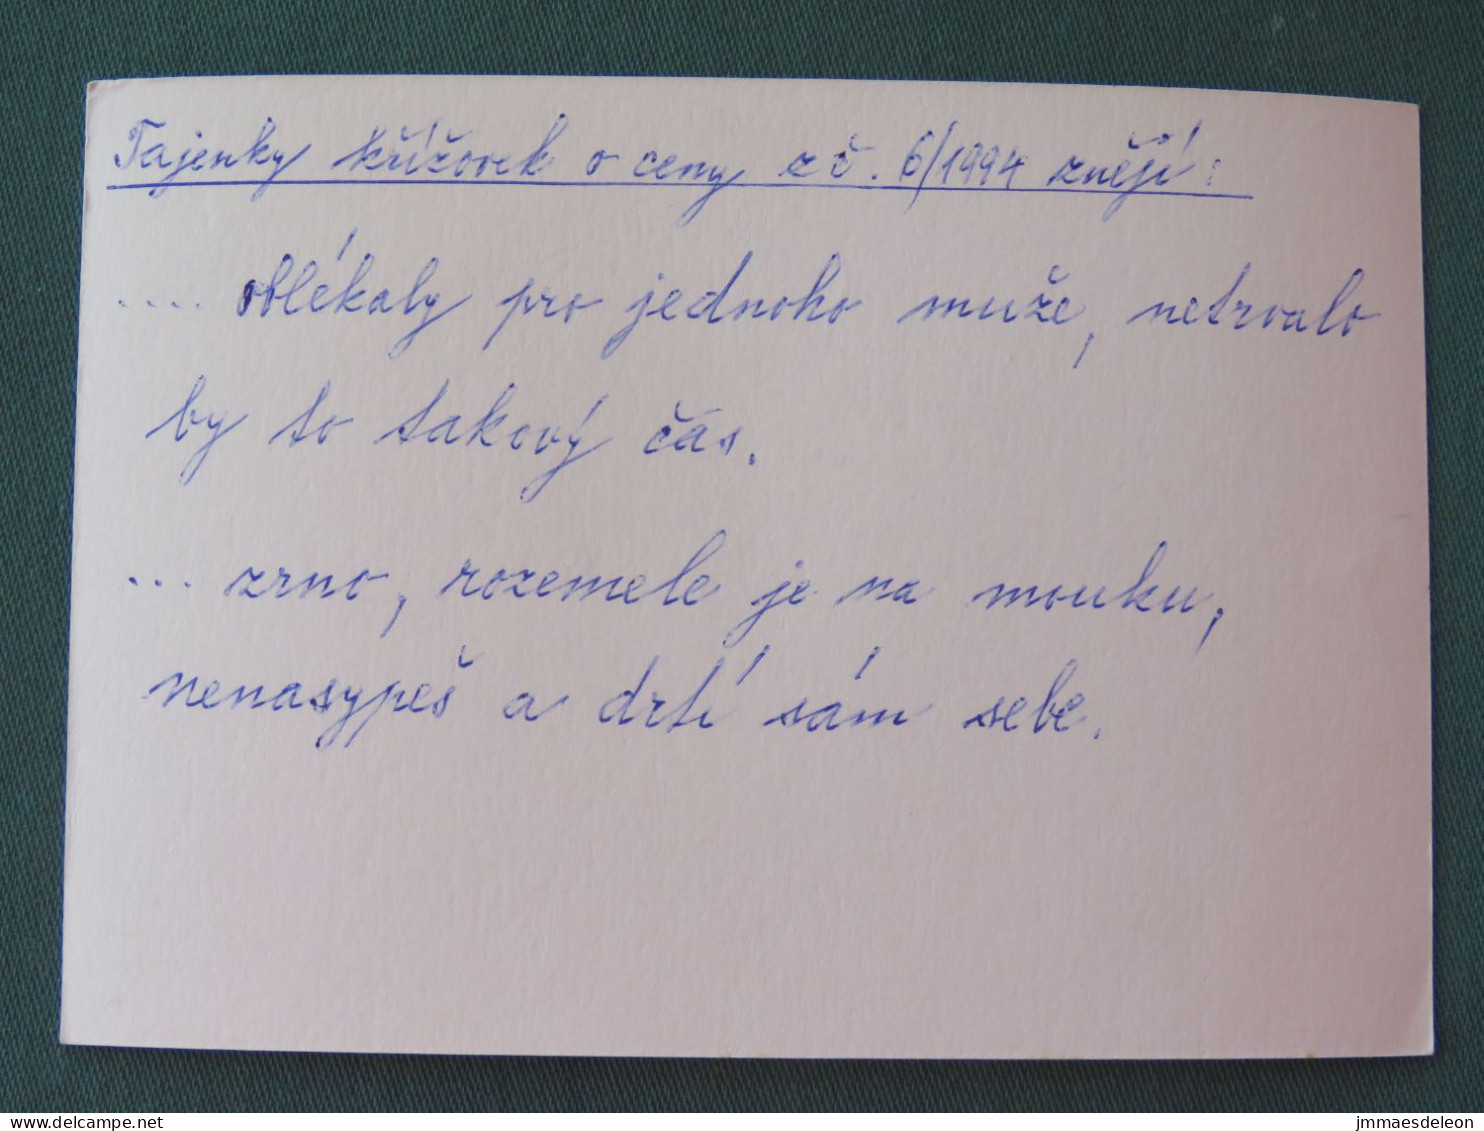 Tajenky křížovek o ceny z č. 6/1994 znějí:
.... oblékaly pro jednoho muže, netrvalo
by to takový čas.
... zrno, rozemele je na mouku,
nenasypeš a drtí sám sebe.
delcampe.net
jmmaesdeleon